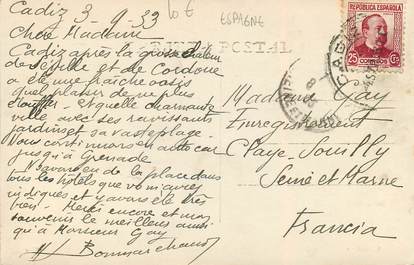 Cadiz 3-9-33
10€ ESPAGNE
Chère Madame
Cadiz après la grosse chaleur
de Séville et de Cordoue
a été une fraîche oasis
quel plaisir de ne plus
étouffer. Et quelle charmante
ville avec ses ravissants
jardins et sa vaste plage.
Nous continuons en autocar
jusqu'à Grenade
avons eu de la place dans
tous les hotels que vous m'avez
indiqués et y avons été très
bien. Merci encore et mon
souvenir le meilleur ainsi
qu'à Monsieur Gay
Bonmarchand
POSTAL
REPÚBLICA ESPAÑOLA
25 CORREOS Cts
CADIZ
Madame Gay
Enregistrement
Claye-Souilly
Seine et Marne
Francia